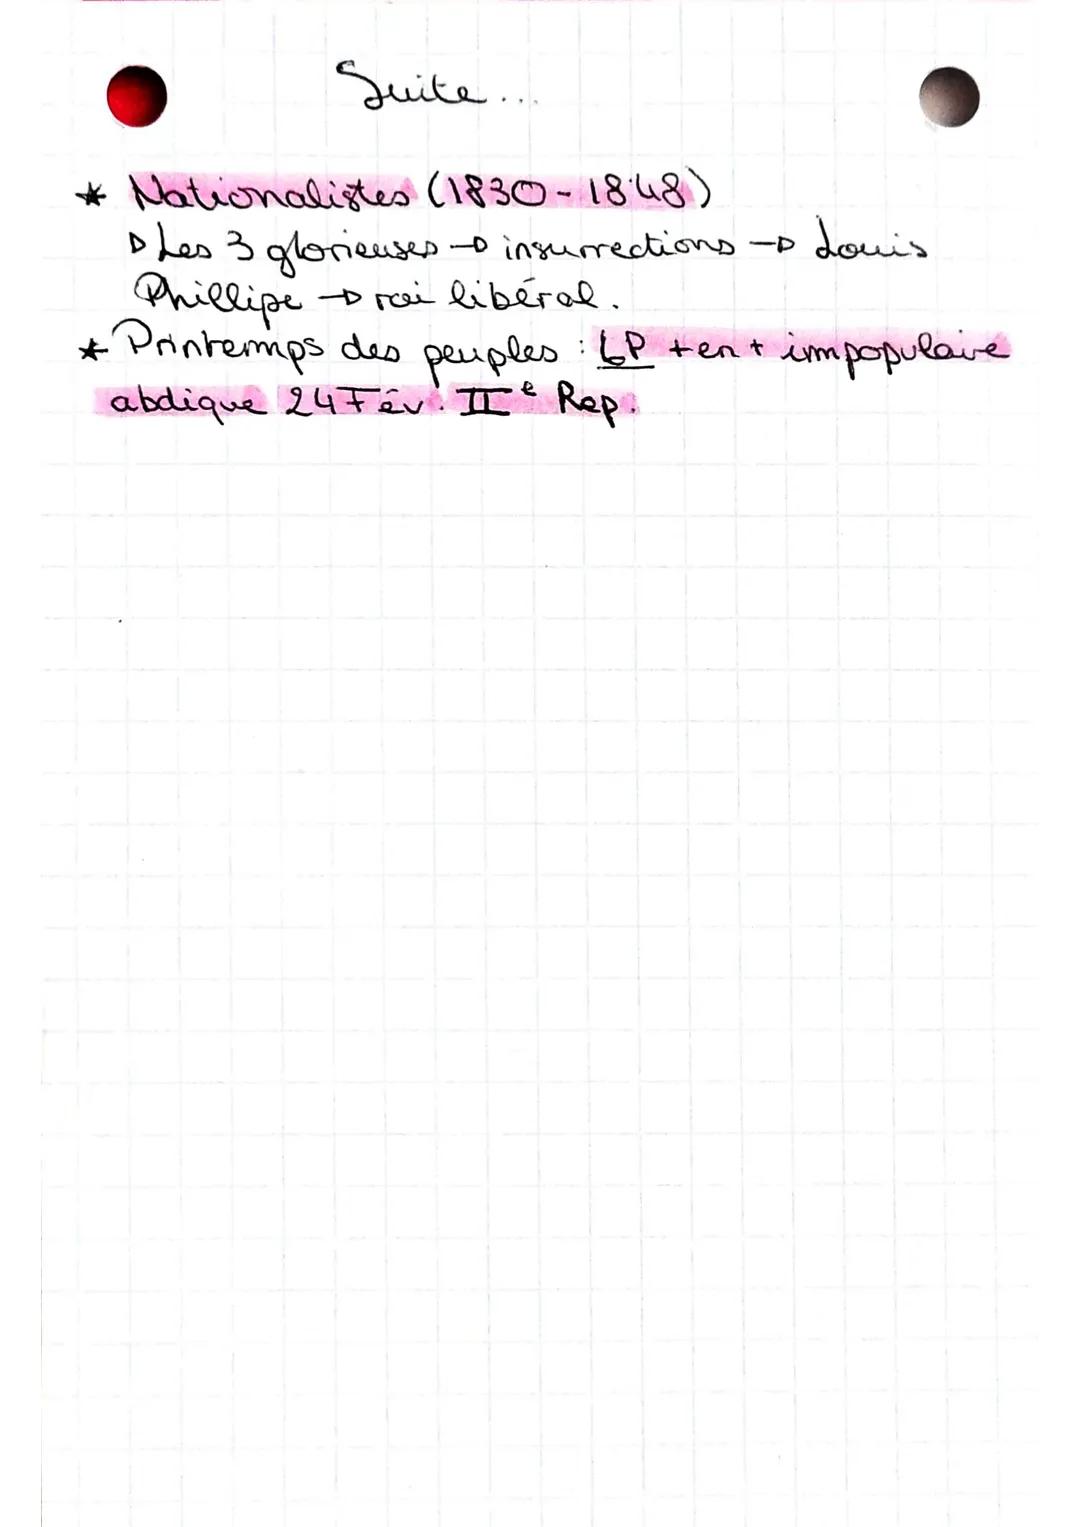 Suite...
* Nationalistes (1830-1848)
▷ Les 3 glorieuses → insurrections → Louis
Phillipe → roi libéral.
* Printemps des peuples : LP + en + impopulaire
abdique 24 Fév. IIe Rep.